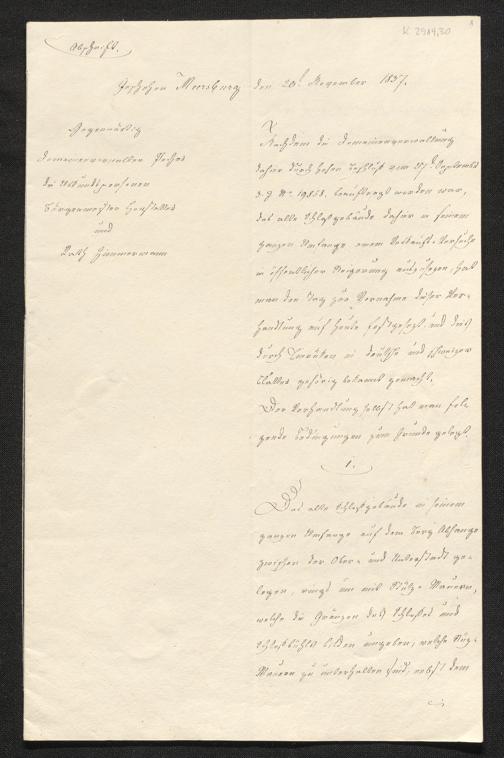 K 2984,30
Abschrift.
Geschehen Meersburg den 20t November 1837.
Gegenwärtig
Domainenverwalter
die Urkundspersonen
Bürgermeister
und
Rath Zimmermann
Nachdem die Domainenverwaltung
dahier durch hohen Beschluß vom 15t September
d. J. No beauftragt worden war,
das alte Schloßgebäude dahier in seinem
ganzen Umfange einem Verkaufs-Versuche
in öffentlicher Steigerung auszusetzen, hat
man den Tag zur Vornahme dieser Ver-
handlung auf heute festgesetzt und dies
durch in deutsche und schweizer
Blätter gehörig bekannt gemacht.
Der Verhandlung selbst hat man fol-
gende Bedingungen zum Grunde gelegt.
1.
Das alte Schloßgebäude in seinem
ganzen Umfange auf dem Berg Abhange
zwischen der Ober- und Unterstadt ge-
legen, rings um mit Stütz-Mauern,
welche die Gränzen des Schlosses und
Schloßbühls bilden umgeben, welche Stütz-
Mauern zu unterhalten sind, nebst dem